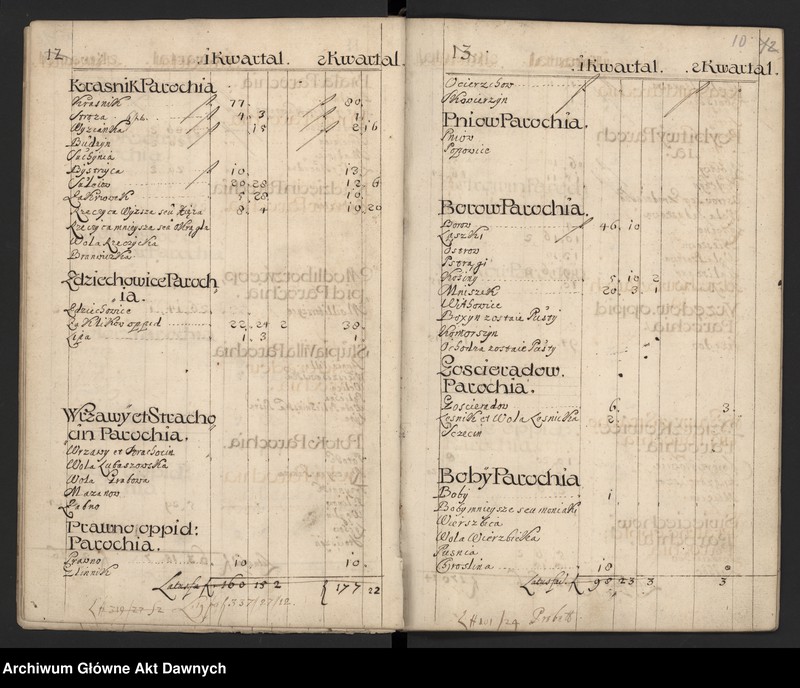 12
1 Kwartal. 2 Kwartal.
Krasnik Parochia
Krasnik 77. 90.
Stroza 4. 3 1
Wyzcanka 15 2 16
Budzyn
Suchynia
Bystryca 10. 13.
Sulow 20 28 12. 6
Zakrzowek 5. 28. 10.
Rzeczyca Wyzsza seu Xięza 8. 4 10. 20
Rzeczyca mnieysza seu Okrągla
Wola Rzeczycka
Branwicka
Zdziechowice Paroch
ia.
Zdziechowice
Zaklikow oppid 22. 24 2 30.
Lipa 1. 3 1.
Wrzawy et Stracho
cin Parochia.
Wrzawy et Strachocin
Wola Lubaszowska
Wola Grabowa
Mazanow
Łabno
Prawno oppid:
Parochia.
Prawno 10. 10.
Zlinnik
Latus fa. 160 15 2 177 22
13
10 12
1 Kwartal. 2 Kwartal.
Ocierzchow
Skowierzyn
Pniow Parochia.
Pniow
Popowice
Borow Parochia.
Borow 46. 10
Laszki
Ostrow
Pstrągi
Kosiny 5. 10 2
Mniszek 20. 3. 1
Witkowice
Boxyn zostaie Pusty
Komorszyn
Ochodza zostaie Pusty
Goscieradow.
Parochia.
Goscieradow 6. 3.
Lesnik et Wola Lesnicka 2
Szczecin
Boby Parochia
Boby 1
Boby mnieysze seu moniaki
Wierszbica
Wola Wierzbicka
Pasnca
Chroslina 10
Latus fa. 95 23 3 3
Archiwum Główne Akt Dawnych